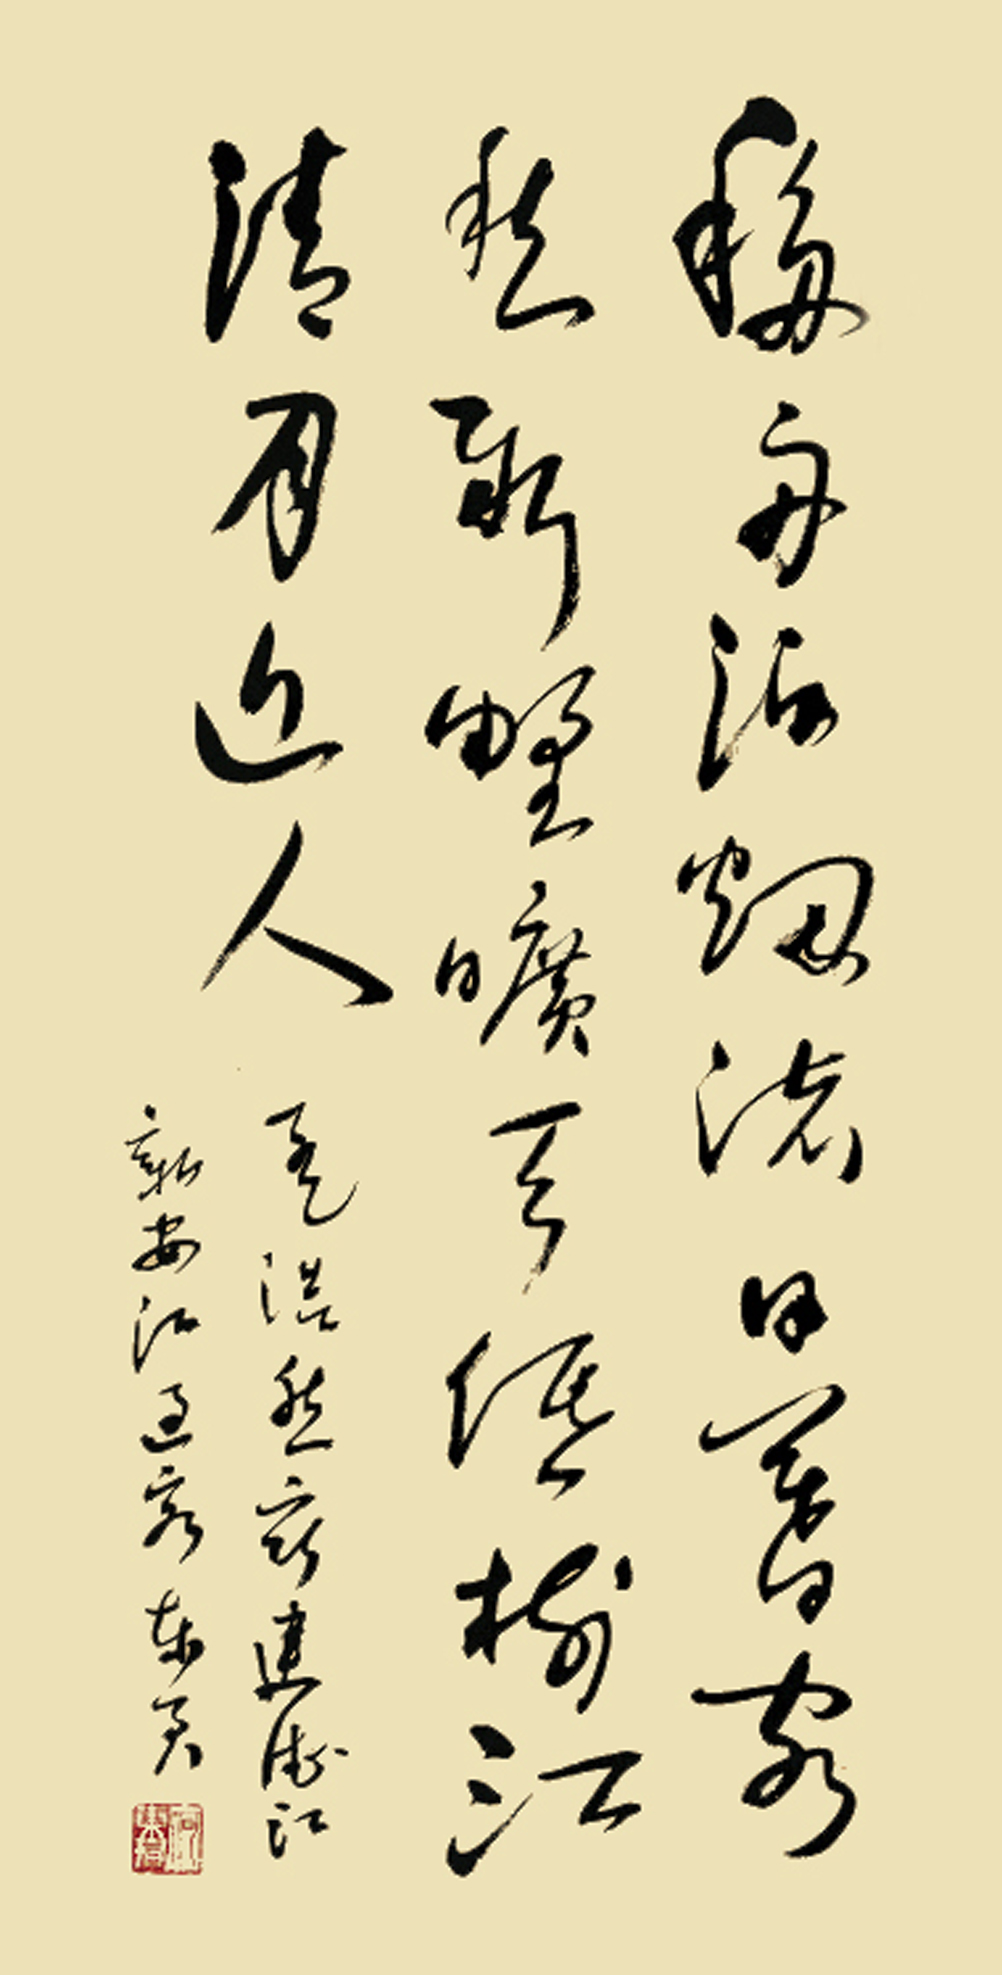 移舟泊烟渚日暮客
愁新野曠天低樹江
清月近人
孟浩然宿建德江
新安江過客